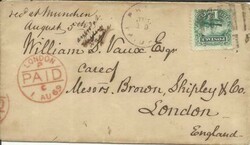 recd at Munchen
August 5th
William S. Vaux, Esqr
Care of
Messrs. Brown, Shipley & Co.
London
England
LONDON
PAID
AU 69